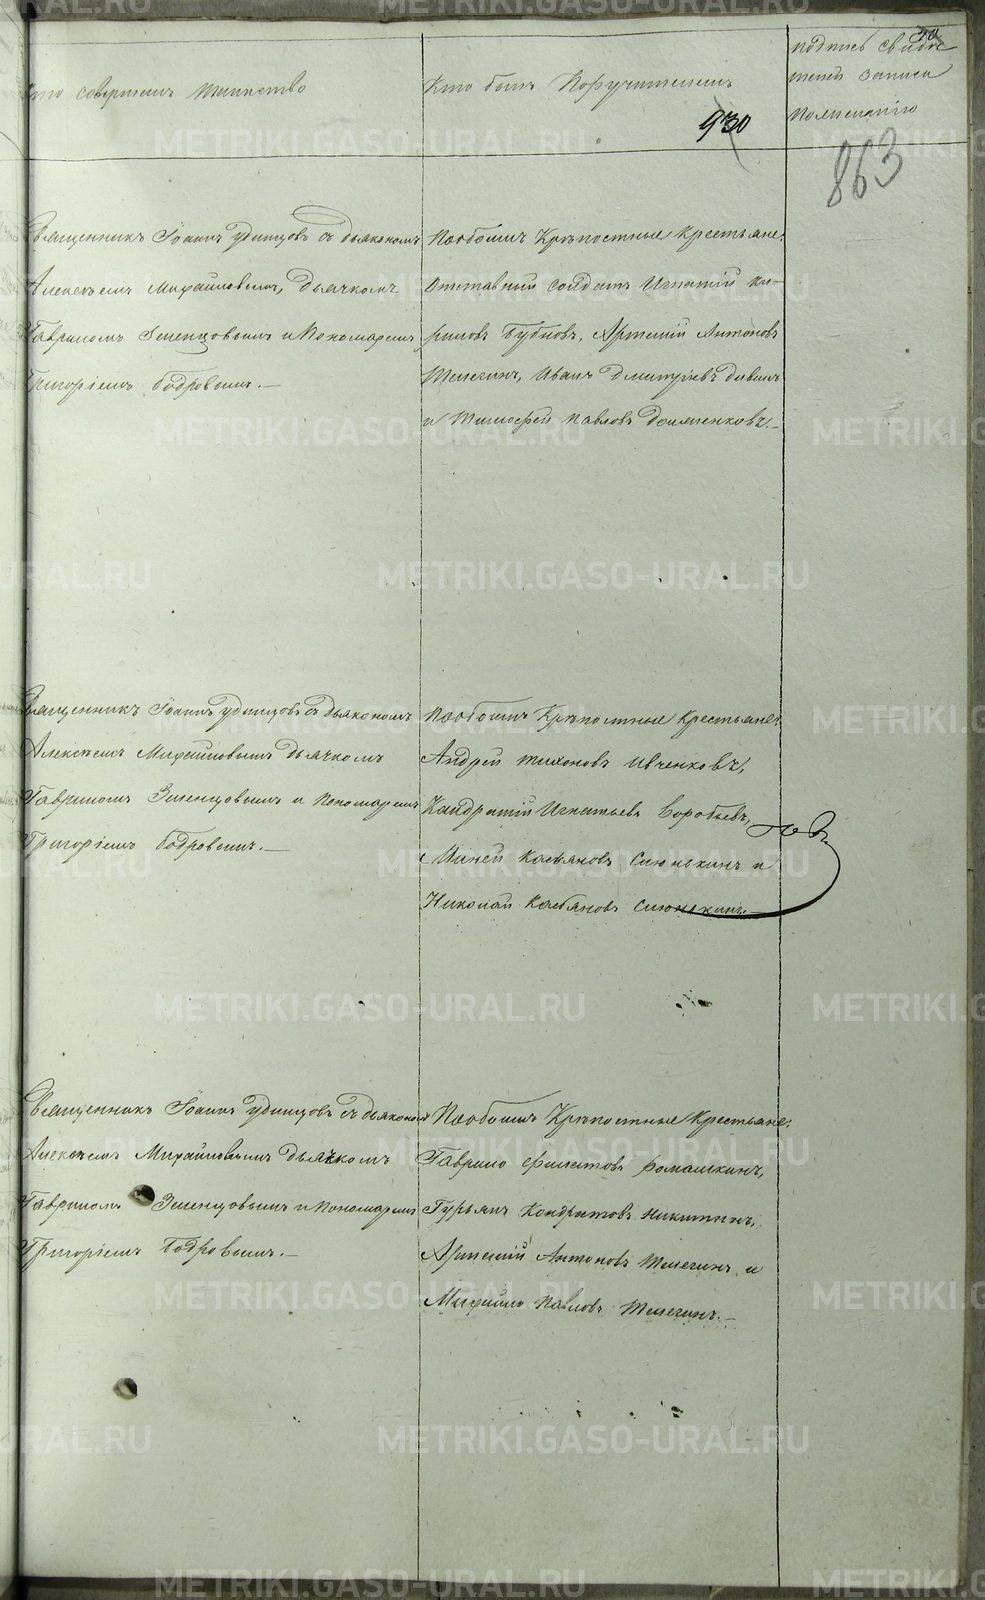 Кто совершалъ таинство
Кто былъ Поручителемъ
подпись свидѣ
телей записи
по желанію
930
863
Священникъ Іоаннъ Удинцовъ съ дьякономъ
Алексѣемъ Михайловымъ, дьячкомъ
Гавриломъ Зеленцовымъ и Пономаремъ
Григоріемъ Бодровымъ.—
По обоимъ Крѣпостные Крестьяне:
Отставный солдатъ Игнатій Ки-
риловъ Бубновъ, Артемій Антоновъ
Телегинъ, Иванъ Дмитріевъ
и Тимофей Павловъ
Священникъ Іоаннъ Удинцовъ съ дьякономъ
Алексѣемъ Михайловымъ дьячкомъ
Гавриломъ Зеленцовымъ и Пономаремъ
Григоріемъ Бодровымъ.—
По обоимъ Крѣпостные Крестьяне:
Андрей Тихоновъ Ивченковъ,
Кандратій Игнатьевъ Воробьевъ,
Миней Касьяновъ Сиюнькинъ и
Николай Касьяновъ Сиюнькинъ.—
Священникъ Іоаннъ Удинцовъ съ дьякономъ
Алексѣемъ Михайловымъ дьячкомъ
Гавриломъ Зеленцовымъ и Пономаремъ
Григоріемъ Бодровымъ.—
По обоимъ Крѣпостные Крестьяне:
Гаврило Филатовъ Ромашкинъ,
Гурьянъ Кондратовъ Никитинъ,
Артемій Антоновъ Телегинъ и
Михайло Павловъ Телегинъ.—
METRIKI.GASO-URAL.RU